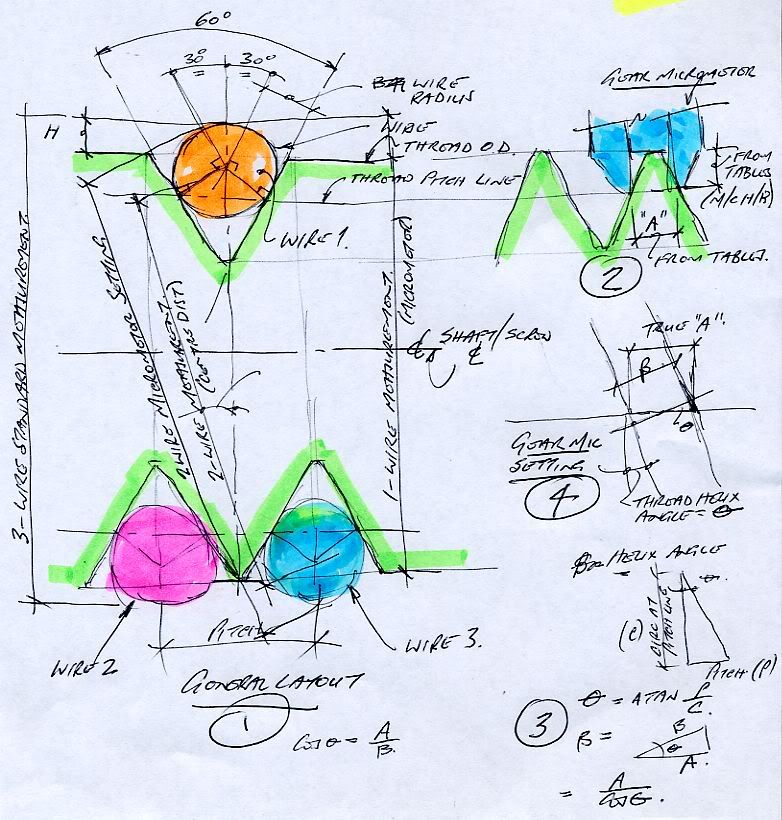 60°
30° 30°
WIRE
RADIUS
H
WIRE
THREAD O.D.
THREAD PITCH LINE
WIRE 1.
3-WIRE STANDARD MEASUREMENT
2 WIRE MICROMETER SETTING
2-WIRE MEASUREMENT
(CENTRE DIST)
1-WIRE MEASUREMENT.
(MICROMETER)
SHAFT/SCREW
℄
PITCH
WIRE 2
WIRE 3.
GENERAL LAYOUT
1
COS θ = A/B.
GEAR MICROMETER
FROM
TABLES
(M/C H/B)
"A"
FROM TABLES.
2
TRUE "A".
B
θ
GEAR MIC
SETTING
4
THREAD HELIX
ANGLE = θ
HELIX ANGLE
θ
CIRC AT
PITCH LINE
(C)
PITCH (P)
3
θ = ATAN P/C.
B =
B
θ
A.
= A/COS θ.